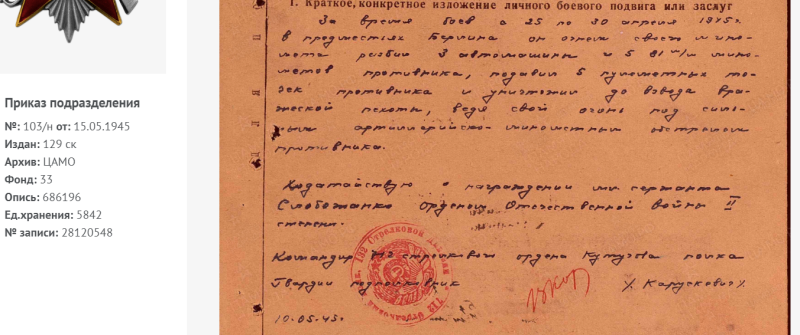 Приказ подразделения
№: 103/н от: 15.05.1945
Издан: 129 ск
Архив: ЦАМО
Фонд: 33
Опись: 686196
Ед.хранения: 5842
№ записи: 28120548
1. Краткое, конкретное изложение личного боевого подвига или заслуг
За время боев с 25 по 30 апреля 1945г.
в предместьях Берлина он огнем своего мино-
мета разбил 3 автомашины и 5 81 м/м мино-
метов противника, подавил 5 пулеметных то-
чек противника и уничтожил до взвода вра-
жеской пехоты, ведя свой огонь под силь-
ным артиллерийско-минометным обстрелом
противника.
Ходатайствую о награждении мл. сержанта
Слобожанко орденом Отечественной войны II
степени.
Командир 712 стрелкового ордена Кутузова полка
Гвардии подполковник / Карускевич /.
10.05.45г.